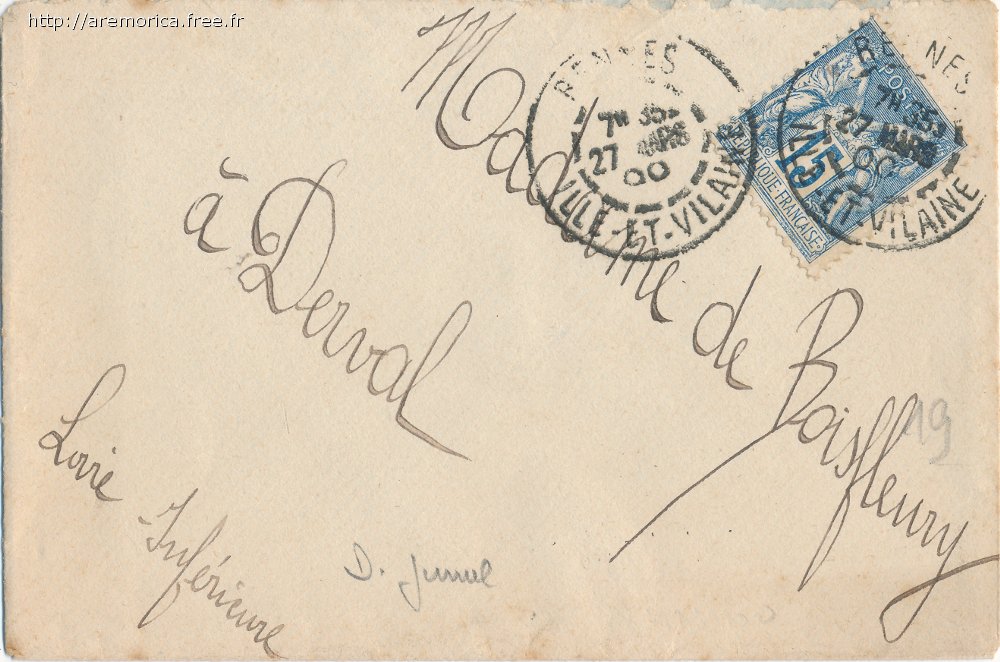 http://aremorica.free.fr
Madame de Boisfleury
à Derval
Loire Inférieure
RENNES
7H 35
27 MARS
00
ILLE-ET-VILAINE
POSTE
15
REPUBLIQUE FRANÇAISE
RENNES
7H 35
27 MARS
00
ILLE-ET-VILAINE
19
D. Jumel